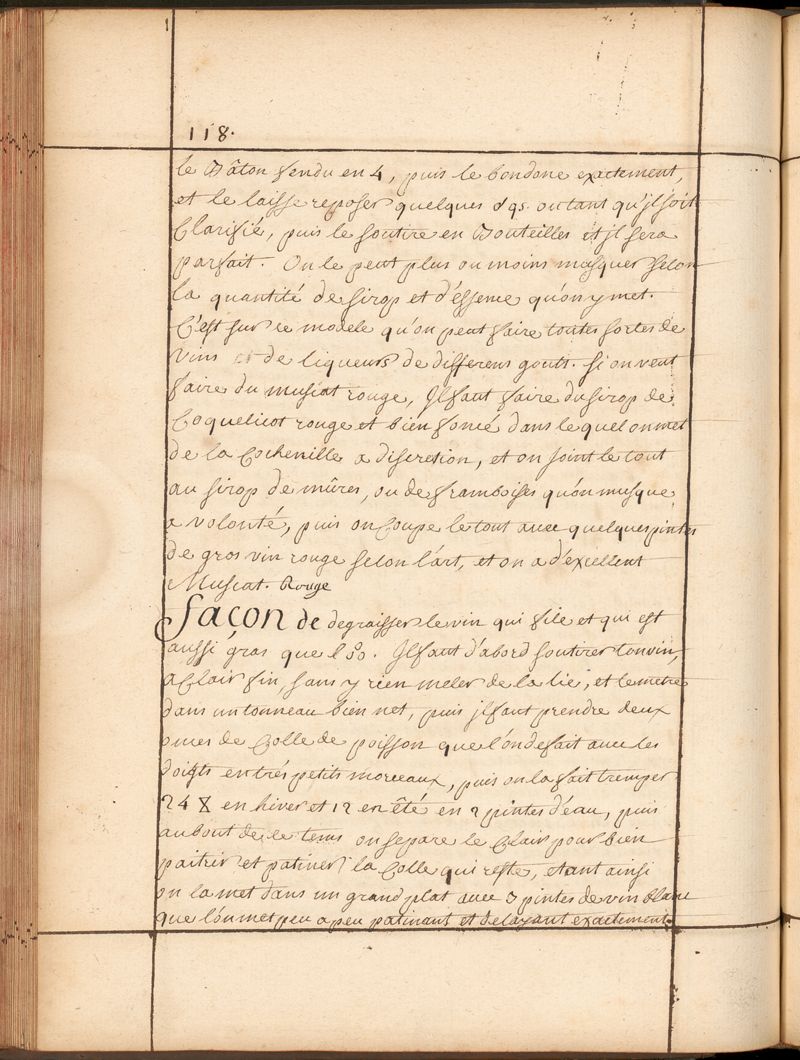 118.
le Bâton fendu en 4, puis le bondone exactement,
et le laisse reposer quelques oltant qu'jl soit
Clarifié, puis le soutire en Bouteilles et jl sera
parfait. On le peut plus ou moins musquer selon
la quantité de sirop et d'éssence qu'on y met.
C'est sur ce modele qu'on peut faire toutes sortes de
vins et de liqueurs de differens gouts. si on veut
faire du muscat rouge, Jl faut faire du sirop de
Coquelicot rouge et bien foncé dans lequel on met
de la Cochenille a discretion, et on joint le tout
au sirop de mûres, ou de framboises qu'on musque
a volonté, puis on Coupe le tout avec quelques pintes
de gros vin rouge selon l'art, et on a d'excellent
Muscat. Rouge
façon de degraisser le vin qui file et qui est
aussi gras que l Jl faut d'abord soutirer ton vin,
a Clair fin, sans y rien meler de la lie, et le metre
dans un tonneau bien net, puis jl faut prendre deux
onces de Colle de poisson que l'ón defait avec les
doigts en trés petits morceaux, puis on la fait tremper
24 en hiver et 12 en êté en 2 pintes d'éau, puis
au bout de ce tems on separe le Clair pour bien
paitrir et patiner la Colle qui reste, etant ainsi
on la met dans un grand plat avec 3 pintes de vin blanc
que l'on met peu a peu patinant et delayant exactement